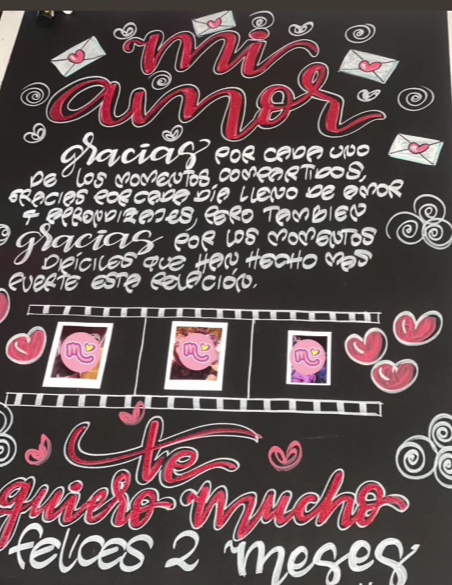 mi
amor
gracias POR CADA UNO
DE LOS MOMENTOS COMPARTIDOS,
GRACIAS POR CADA DÍA LLENO DE AMOR
Y APRENDIZAJES, PERO TAMBIEN
gracias POR LOS MOMENTOS
DIFÍCILES QUE HAN HECHO MAS
FUERTE ESTA RELACIÓN.
te
quiero mucho
FELICES 2 meses